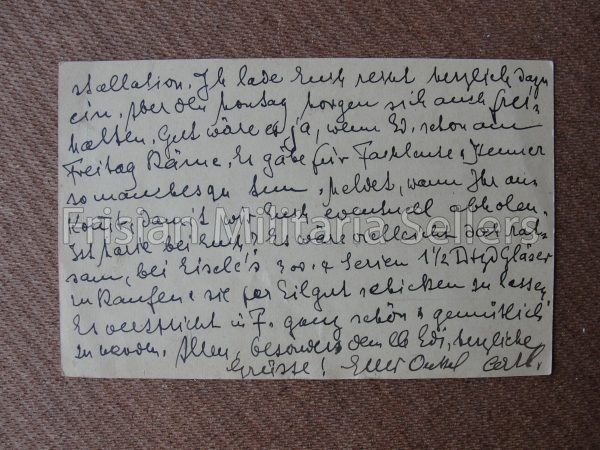 stallation. Ich lade Euch recht herzlich dazu
ein. Aber den Montag Morgen sich auch frei-
halten. Gut wäre es ja, wenn Ed. schon am
Freitag käme. Es gäbe für Fachleute & Kenner
so manches zu tun. Meldet, wann Ihr an-
kommt, damit wir Euch eventuell abholen.
Ist bei Euch? Es wäre vielleicht doch rat-
sam, bei Eisele's 300. & Serien 1/2 Dtzd Gläser
zu kaufen & sie per Eilgut schicken zu lassen.
Es verspricht in F. ganz schön & gemütlich
zu werden. Allen, besonders dem lb Edi, herzliche
Grüsse! Euer Onkel
Frisian Militaria Sellers